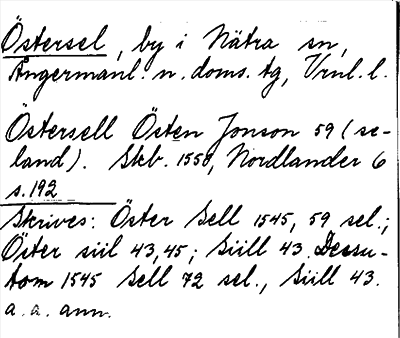 Östersel, by i Nätra sn,
Ångermanl. n. doms. tg, Vrnl. l.
Östersell Östen Jonson 59 (se-
land). Skb. 1550, Nordlander 6
s. 192
Skrives: Öster Sell 1545, 59 sel.;
Öster siil 43, 45; Siill 43. Dessu-
tom 1545 Sell 72 sel., Siill 43.
a. a. ann.